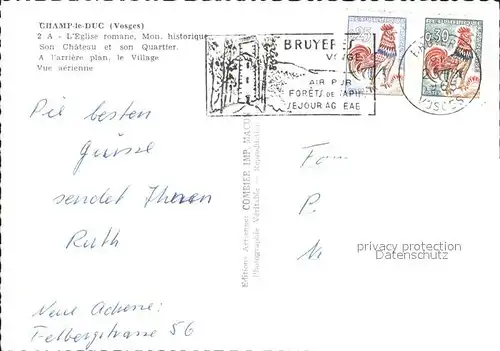 CHAMP-le-DUC (Vosges)
2 A - L'Eglise romane, Mon. historique
Son Château et son Quartier.
A l'arrière plan, le Village
Vue aérienne
BRUYERES
VOSGES
AIR PUR
FORÊTS DE SAPIN
SEJOUR AGREAB
0,25
0,30
VOSGES
Die besten
Grüsse
sendet Ihnen
Ruth
Neue Adresse:
Felbergstrasse 56
Fam
P.
M
privacy protection
Datenschutz
Editions Artisanat COMBIER IMP. MACON
Photographie Véritable - Reproduction